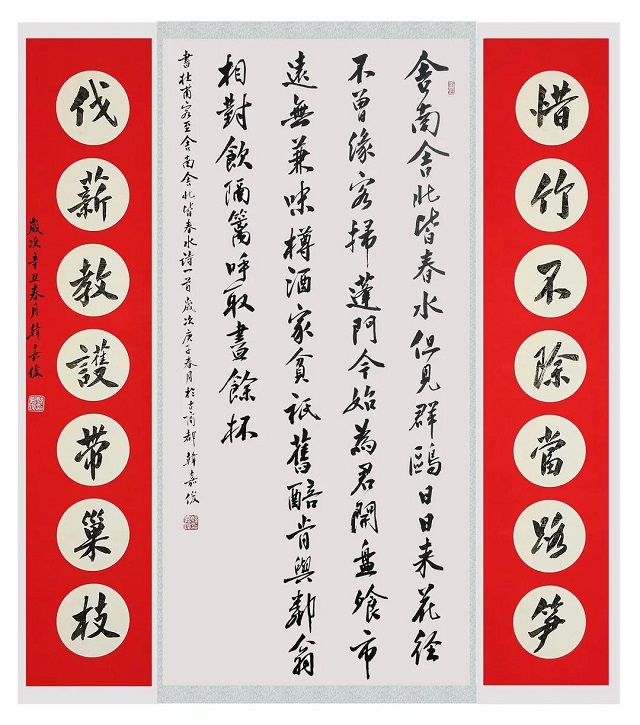 惜竹不除當路笋
舍南舍北皆春水但見群鷗日日来花徑
不曾緣客掃蓬門今始為君開盤飱市
遠無兼味樽酒家貧衹舊醅肯與鄰翁
相對飲隔籬呼取盡餘杯
書杜甫客至舍南舍北皆春水詩一首歲次庚子春月於古商都韓嘉俊
伐薪教護帶巢枝
歲次辛丑春月韓嘉俊